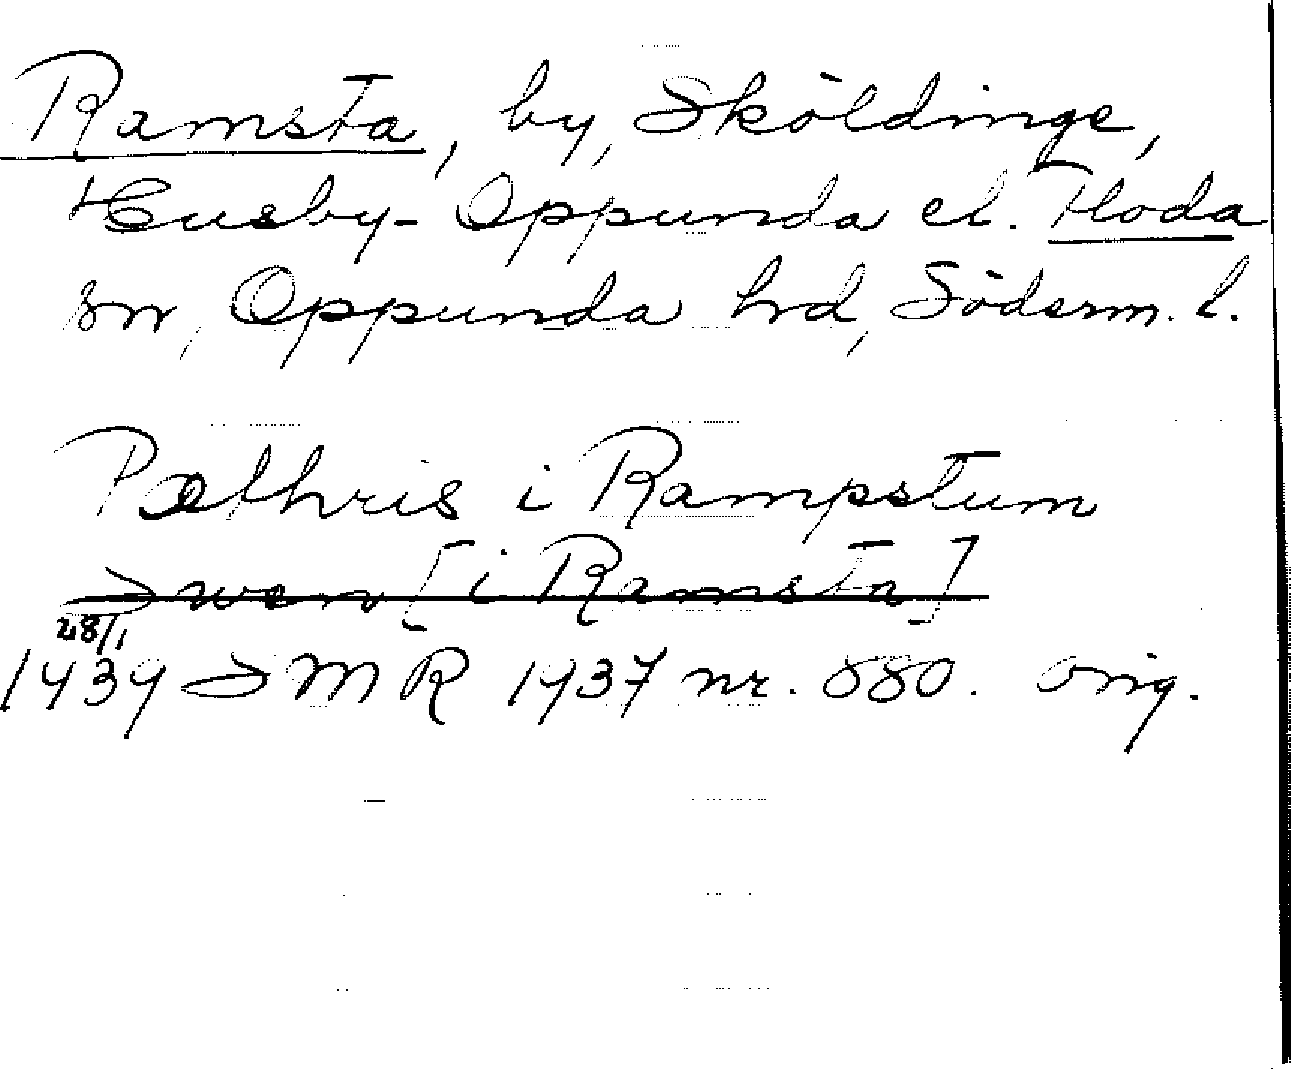 Ramsta, by, Sköldinge,
Husby-Oppunda el. Floda
sn, Oppunda hd, Söderm. l.
Pæthris i Rampstum
Swen [i Ramsta]
28/1
1439 SMR 1937 nr. 880. orig.